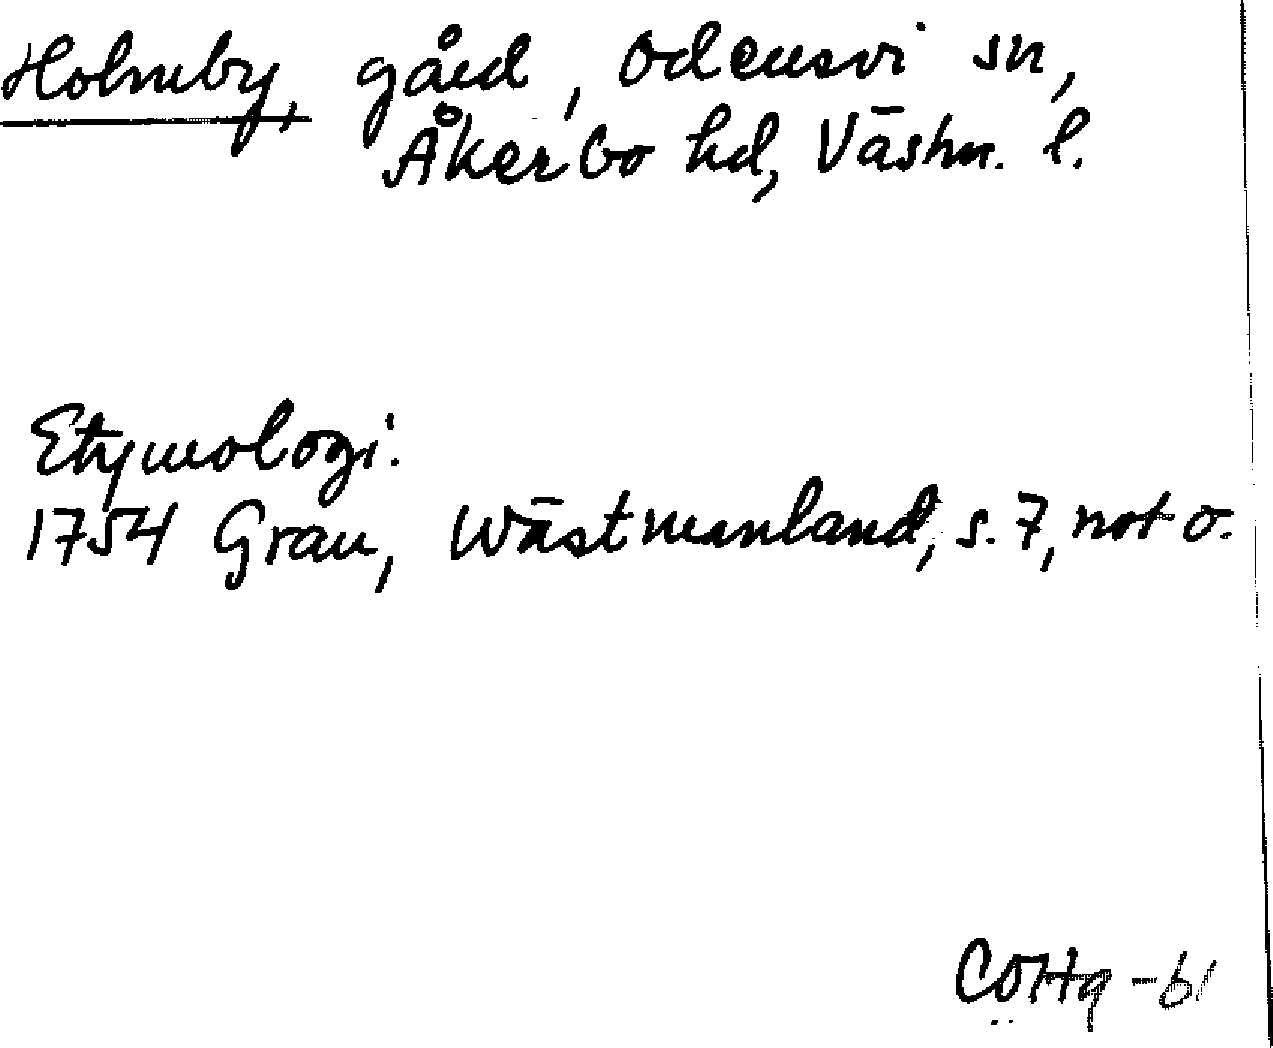 Holmby, gård, Odensvi sn,
Åkerbo hd, Västm. l.
Etymologi:
1754 Grau, Wästmanland, s. 7, not o.